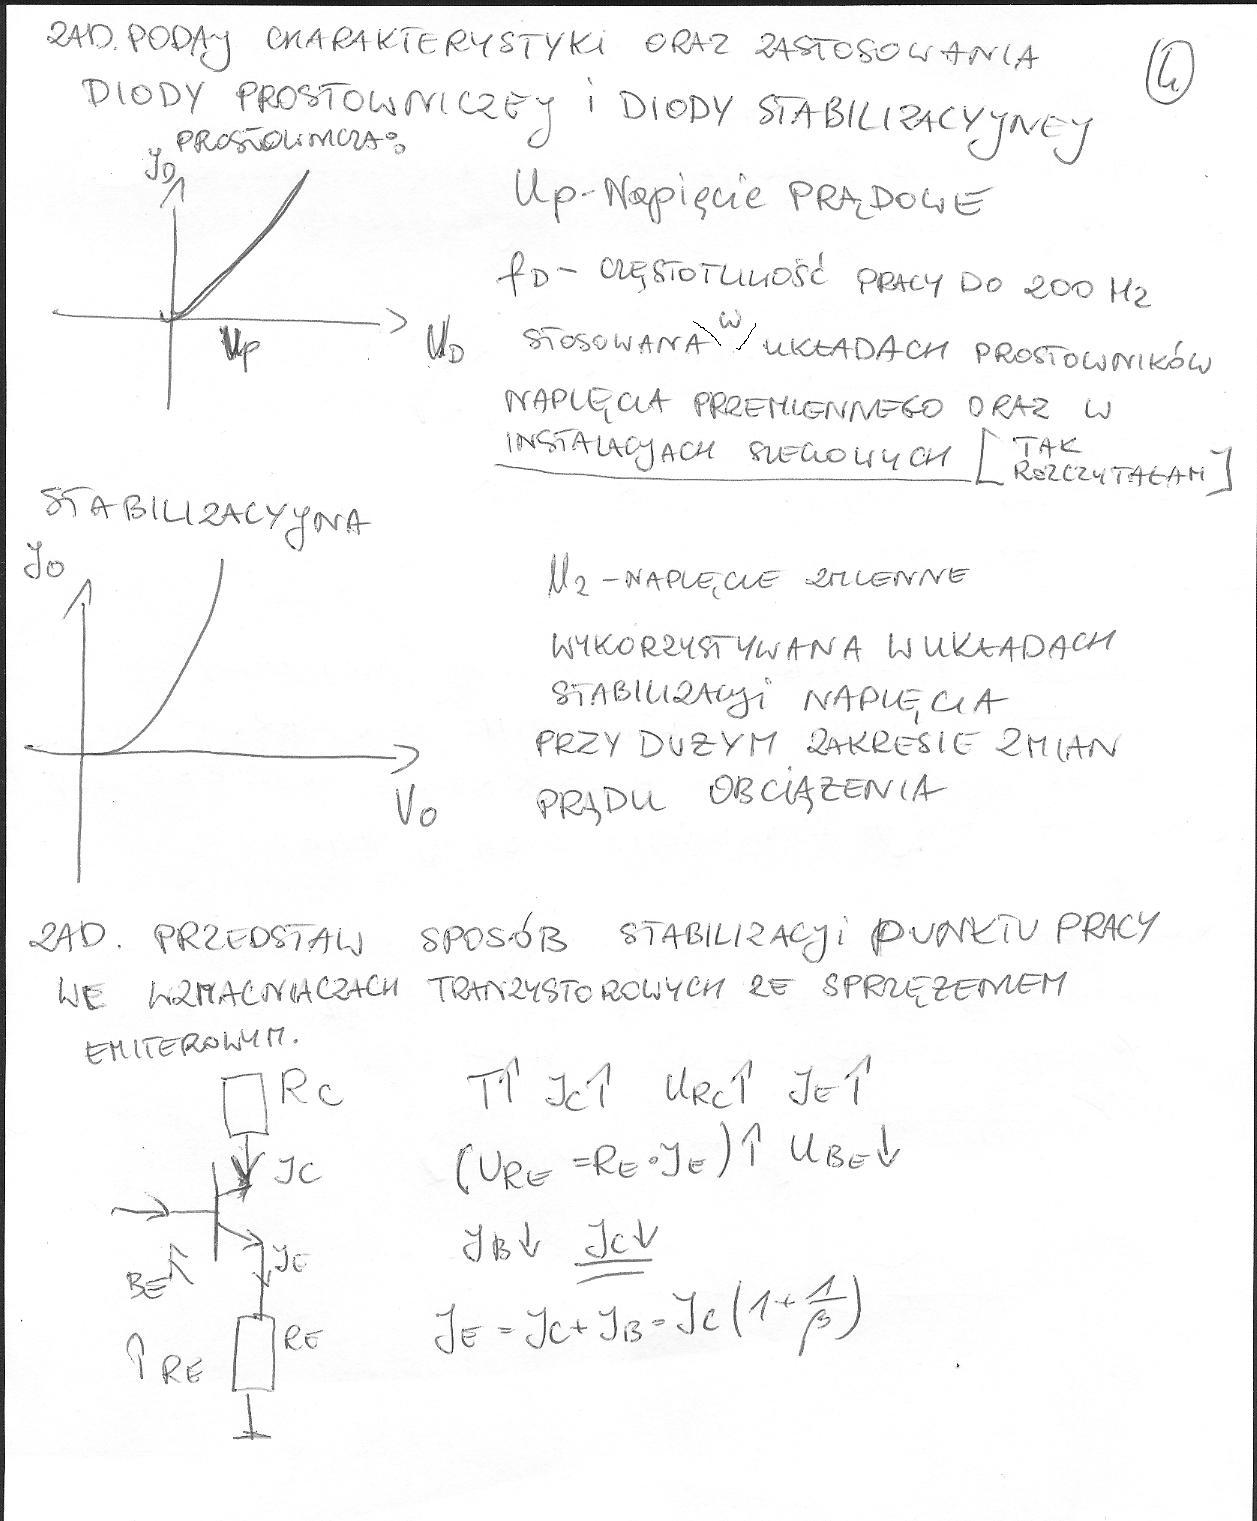 ZAD. PODAJ CHARAKTERYSTYKI ORAZ ZASTOSOWANIA
4
DIODY PROSTOWNICZEJ i DIODY STABILIZACYJNEJ
PROSTOWNICZA:
JD
UD
Up
Up - Napięcie PRĄDOWE
fD - CZĘSTOTLIWOŚĆ PRACY DO 200 Hz
STOSOWANA W UKŁADACH PROSTOWNIKÓW
NAPIĘCIA PRZEMIENNEGO ORAZ W
INSTALACJACH SIECIOWYCH [TAK
ROZCZYTAŁAM]
STABILIZACYJNA
JD
UD
UZ - NAPIĘCIE ZMIENNE
WYKORZYSTYWANA W UKŁADACH
STABILIZACJI NAPIĘCIA
PRZY DUZYM ZAKRESIE ZMIAN
PRĄDU OBCIĄZENIA
ZAD. PRZEDSTAW SPOSÓB STABILIZACJI PUNKTU PRACY
WE WZMACNIACZACH TRANZYSTOROWYCH ZE SPRZĘŻENIEM
EMITEROWYM.
RC
JC
JE
BE↑
RE
↑RE
T↑ JC↑ URC↑ JE↑
(URE = RE·JE)↑ UBE↓
JB↓ JC↓
JE = JC + JB = JC (1 + 1/β)